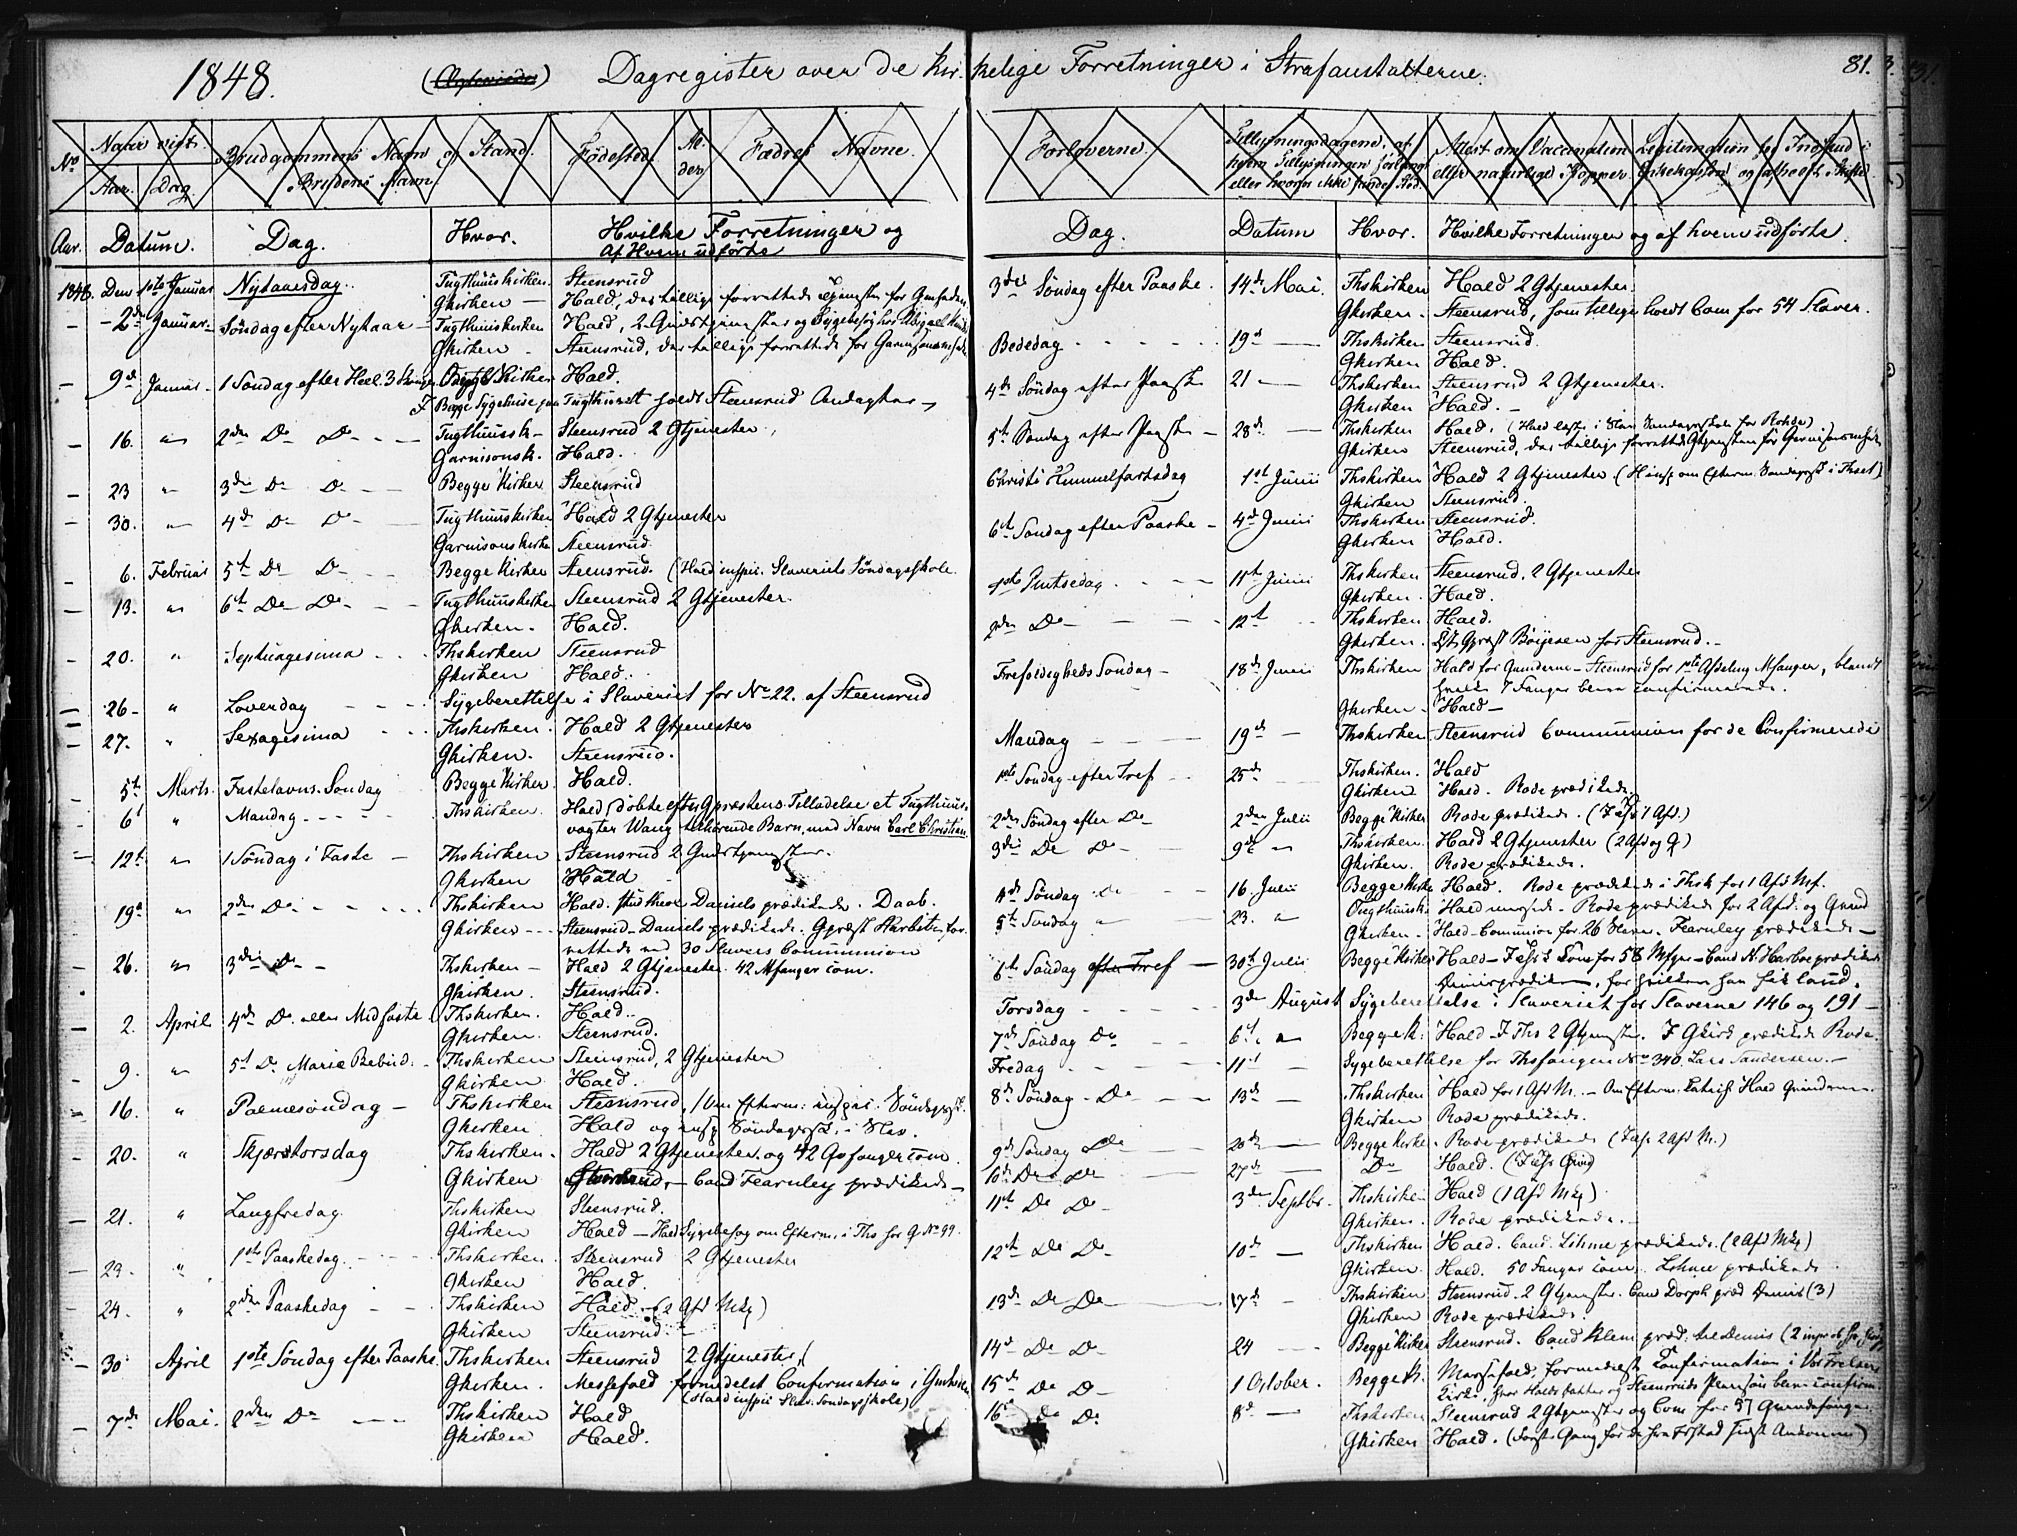 1848. (Copulerede) Dagregister over de kirkelige Forretninger i Strafanstalterne. 81.
No Naar viet. Brudgommens Navn og Stand. Fødested. Fædres Navne.
Aar. Dag. Brudens Navn.
Aar. Datum. Dag. Hvor. Hvilke Forretninger og
Af Hvem udførte
1848. Den 1ste Januar Nytaarsdag. Tugthuuskirken. Steensrud
Gkirken — Hald, der tillige forrettede Tjenesten for
2den Januar Søndag efter Nytaar — Tugthuuskirken Hald, 2 Gudstjenester og Sygebesøg hos
Gkirken - Steensrud, der tillige forrettede for
9de Januar. 1 Søndag efter Begge Kirker Hald.
I Begge Sygehuse paa Tugthuset holdt Steensrud Andagter
16. " 2den Do Do Tugthuusk- Steensrud 2 Gtjenester
Garnisonsk. Hald.
23 " 3die Do Do Begge Kirker Steensrud
30. " 4de Do Do Tugthuuskirken Hald 2 Gtjenester
Garnisonskirke Steensrud.
6. Februar 5te Do Do Begge Kirker Steensrud (Hald inspic. Slaveriets Søndagsskole.
13. " 6te Do Do Tugthuuskirken Steensrud 2 Gtjenester.
Gkirken. Hald.
20. " Septuagesima Thskirken Steensrud
Gkirken Hald.
26 " Løverdag Sygeberettelse i Slaveriet for No 22. af Steensrud
27. " Sexagesima Thskirken. Hald 2 Gtjenester
Gkirken. Steensrud.
5te Marts. Fastelavns-Søndag Begge Kirker Hald.
6te " Mandag Thskirken. Hald, døbte efter Gpræstens Tilladelse et Tugthuus-
vogter Wang tilhørende Barn, med Navn Carl Christian.
12te " 1 Søndag i Faste — Thskirken Steensrud 2 Gudstjenester.
Gkirken Hald
19de " 2den Do Thskirken Hald. Daniels prædikede. Daab.
Gkirken Steensrud - Daniels prædikede. Gpræst for-
rettede ved 30 Slavers Communion
26. " 3die Do Thskirken — Hald 2 Gtjenester. 42 Mfanger Com.
Gkirken. Steensrud.
2. April 4de Do eller Midfaste Thskirken. Hald.
Gkirken. Steensrud.
9. " 5te Do Mariæ Bebud. Thskirken Steensrud, 2 Gtjenester
Gkirken Hald.
16. " Palmesøndag — Thskirken Steensrud, (Om Efterm. inspic. Søndagssk.
Gkirken Hald og insp Søndagssk. i Slav.
20. " Skjærstorsdag Thskirken. Hald 2 Gtjenester. og 42 Gfanger Com
Gkirken Steensrud, — Cand Fearnley prædikede —
21. " Langfredag. Thskirken Steensrud.
Gkirken Hald — Hald Sygebesøg om Efterm. i Ths for G No 99.
23. " 1ste Paaskedag. Thskirken. Steensrud 2 Gtjenester
Gkirken Hald.
24. " 2den Paaskedag Thskirken Hald (2 Afd Mkj)
Gkirken Steensrud.
30 April 1ste Søndag efter Paaske. Thskirken Steensrud 2 Gtjenester
Gkirken. Messefald formedelst Confirmation i
(Hald inspic Slav. Søndagsskole)
7de Mai. 2den Do Thskirken Hald
Gkirken Hald.
Forloverne.
Attest om Vaccination
eller naturlige Kopper.
Dag. Datum Hvor. Hvilke Forretninger og af hvem udførte.
3die Søndag efter Paaske. 14de Mai. Thskirken Hald 2 Gtjenester.
Gkirken. Steensrud, som tillige holdt Com for 54 Slaver.
Bededag 19de Thskirken Steensrud.
Gkirken Hald.
4de Søndag efter Paaske 21 — Thskirken Steensrud 2 Gtjenester.
Gkirken Hald.
5te Søndag efter Paaske — 28de Thskirken Hald.
Gkirken Steensrud, der tillige forrettede Gtjenesten for
Christi Himmelfartsdag 1ste Junii Thskirken Hald 2 Gtjenester
Gkirken Steensrud.
6te Søndag efter Paaske — 4de Junii Thskirken Steensrud.
Gkirken Hald.
1ste Pintsedag. 11te Junii Thskirken Steensrud. 2 Gtjenester
Gkirken. Hald.
2den Do 12te Thskirken Hald.
Gkirken. Gpræst Bøyesen for Steensrud.
Trefoldigheds Søndag — 18de Junii Thskirken Hald for Qvinderne — Steensrud for 1ste Afdeling Mfanger, blandt
hvilke 7 Fanger bleve Confirmerede.
Gkirken Hald —
Mandag 19de Thskirken Steensrud Communion for de Confirmerede
1ste Søndag efter Tref 25de Thskirken. Hald
Gkirken Hald. Rode prædikede.
2den Søndag efter Do 2den Julii Begge Kirker Rode prædikede. (1 Afd.)
3die Do Do 9de " Thskirken. Hald 2 Gtjenester (2 Afd og Q)
Gkirken. Rode prædikede.
4de Søndag Do 16. Julii Begge Kirke Hald. Rode prædikede i Thsk for 1 Afd Mf.
5te Søndag " 23. " Tugthuusk. Hald messede. Rode prædikede for 2 Afd. og Qvind
Gkirken. Hald — Communion for 26 Slaver. Fearnley prædikede —
6te Søndag efter Tref — 30te Julii Begge Kirker Hald — Com for 58 Mfgr — Cand N Harboe prædikede
Dimisprædiken, for hvilken han fik laud.
Torsdag 3die August Sygeberettelse i Slaveriet for Slaverne 146 og 191 —
7de Søndag Do 6te " Begge K. Hald — I Ths 2 Gtjenester. I Gkirk prædikede Rode.
Fredag 11te Sygeberettelse for Thsfangen No 340. Lars Gundersen. —
8de Søndag — Do 13de Thskirken Hald for 1 Afd M. — Om Efterm. Hald Qvinderne
Gkirken Rode prædikede.
9de Søndag Do 20de Begge Kirke. Rode prædikede (2 Afd M.)
10de Do Do 27de Do Hald.
11te Do Do 3die Septbr. Thskirken Hald (1 Afd Mkj)
Gkirken. Rode prædikede.
12te Do Do 10de Thskirken Hald. Cand. Lihme prædikede. (2 Afd Mkj)
Gkirken. Hald. 50 Fanger Com. Lihme prædikede
13de Do Do 17de Thskirken Steensrud. 2 Gtjenester. Cand Dorph præd Dimis (3)
Gkirken Rode prædikede.
14de Do Do 24 Begge Kirker Steensrud. Cand Klem præd.
15de Do Do 1 October. Begge K. Messefald, formedelst Confirmation i Vor Frelsers
Kirke, hvor Halds Datter og Steensruds bleve Confirm.
16de Do Do 8de — Thskirken Steensrud 2 Gtjenester og Com for 57 Qvindefanger
Gkirken Hald.